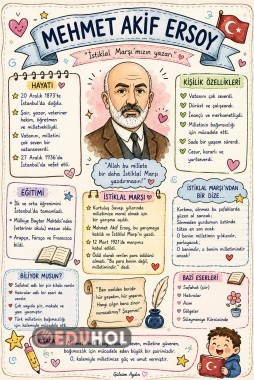 MEHMET AKİF ERSOY
"İstiklal Marşı'mızın yazarı"
HAYATI
20 Aralık 1873'te
İstanbul'da doğdu.
Şair, yazar, veteriner
hekim, öğretmen
ve milletvekiliydi.
Vatanını, milletini
çok seven bir
vatanseverdi.
27 Aralık 1936'da
İstanbul'da vefat etti.
KİŞİLİK ÖZELLİKLERİ
Vatanını çok severdi.
Dürüst ve çalışkandı.
İnançlı ve merhametliydi.
Milletinin bağımsızlığı
için mücadele etti.
Sade bir yaşam sürerdi.
Cesur, kararlı ve
yurtseverdi.
"Allah bu millete
bir daha İstiklal Marşı
yazdırmasın!"
EĞİTİMİ
İlk ve orta öğrenimini
İstanbul'da tamamladı.
Halkalı Baytar Mektebi'nden
(veteriner okulu) mezun oldu.
Arapça, Farsça ve Fransızca
bildi.
İSTİKLAL MARŞI
Kurtuluş Savaşı yıllarında
milletimize moral olmak için
bir yarışma açıldı.
Mehmet Akif Ersoy, bu yarışmaya
katıldı ve İstiklal Marşı'nı yazdı.
12 Mart 1921'de marşımız
kabul edildi.
Ödül olarak verilen para ödülünü
almadı. "Bu para benim değil,
milletimindir." dedi.
İSTİKLAL MARŞI'NDAN
BİR DİZE...
Korkma, sönmez bu şafaklarda
yüzen al sancak;
Sönmeden yurdumun üstünde
tüten en son ocak.
O benim milletimin yıldızıdır,
parlayacak;
O benimdir, o benim milletimindir
ancak!
BİLİYOR MUSUN?
Safahat adlı bir şiir kitabı vardır.
Türk edebiyatının
Çok sayıda şiir, makale ve
yazı yazmıştır.
Türk milletinin bağımsızlığı
için kalemiyle mücadele etti.
"Ben ezelden beridir
hür yaşadım, hür yaşarım.
Hangi çılgın bana zincir
vuracakmış? Şaşarım!"
BAZI ESERLERİ
Safahat (şiir)
Hatıralar
Asım
Gölgeler
Süleymaniye Kürsüsünde
EDUHOL
seven, milletine güvenen,
bağımsızlık için mücadele eden büyük bir şairimizdir.
O, kalemiyle milletimize güç ve umut vermiştir.
Gülsüm Aydın